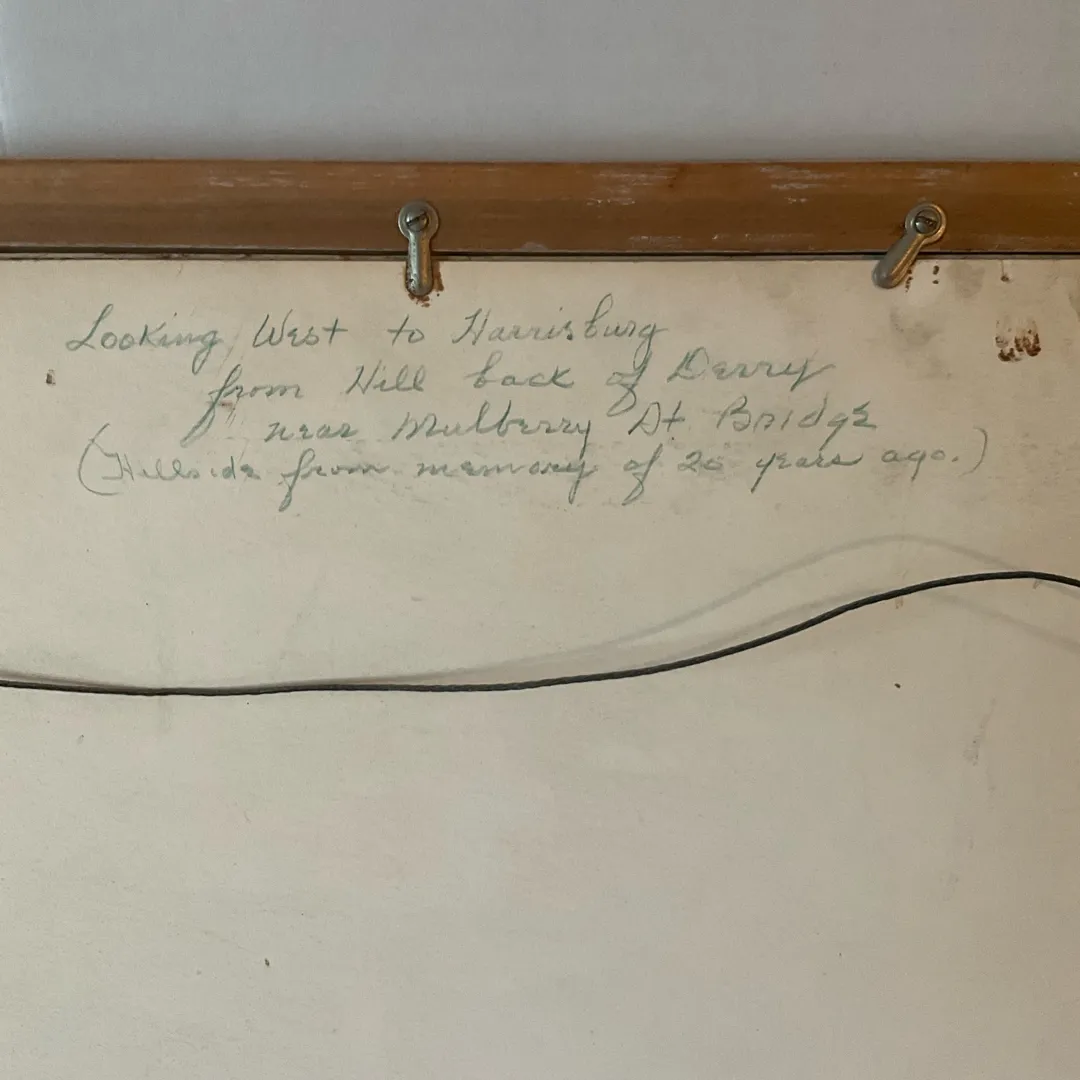 Looking West to Harrisburg
from Hill back of Derry
near Mulberry St. Bridge
(Hillside from memory of 20 years ago.)